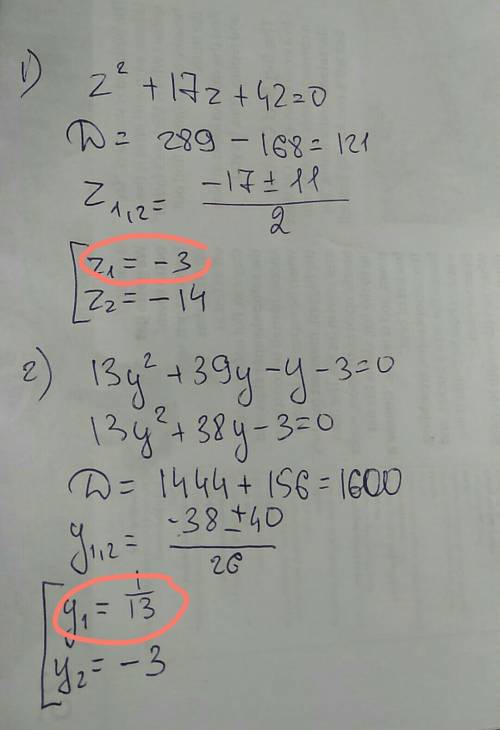 1) z² + 17z + 42 = 0
D = 289 - 168 = 121
z₁,₂ = (-17 ± 11) / 2
[ z₁ = -3
z₂ = -14
2) 13y² + 39y - y - 3 = 0
13y² + 38y - 3 = 0
D = 1444 + 156 = 1600
y₁,₂ = (-38 ± 40) / 26
[ y₁ = 1/13
y₂ = -3